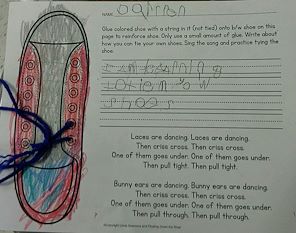 NAME
Glue colored shoe with a string in it (not tied) onto b/w shoe on this
page to reinforce shoe. Only use a small amount of glue. Write about
how you can tie your own shoes. Sing the song and practice tying the
shoe.
Laces are dancing. Laces are dancing.
Then criss cross. Then criss cross.
One of them goes under. One of them goes under.
Then pull tight. Then pull tight.
Bunny ears are dancing. Bunny ears are dancing.
Then criss cross. Then criss cross.
One of them goes under. One of them goes under.
Then pull through. Then pull through.